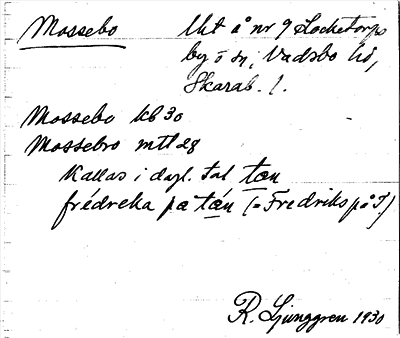 Mossebo Utt å nr 9 Locketorps
by o sn, Vadsbo hd,
Skarab. l.
Mossebo kb 30
Mossebro mtl 28
Kallas i dagl. tal tæn
frédreka pa tæn (= Fredriks på T)
R. Ljunggren 1930